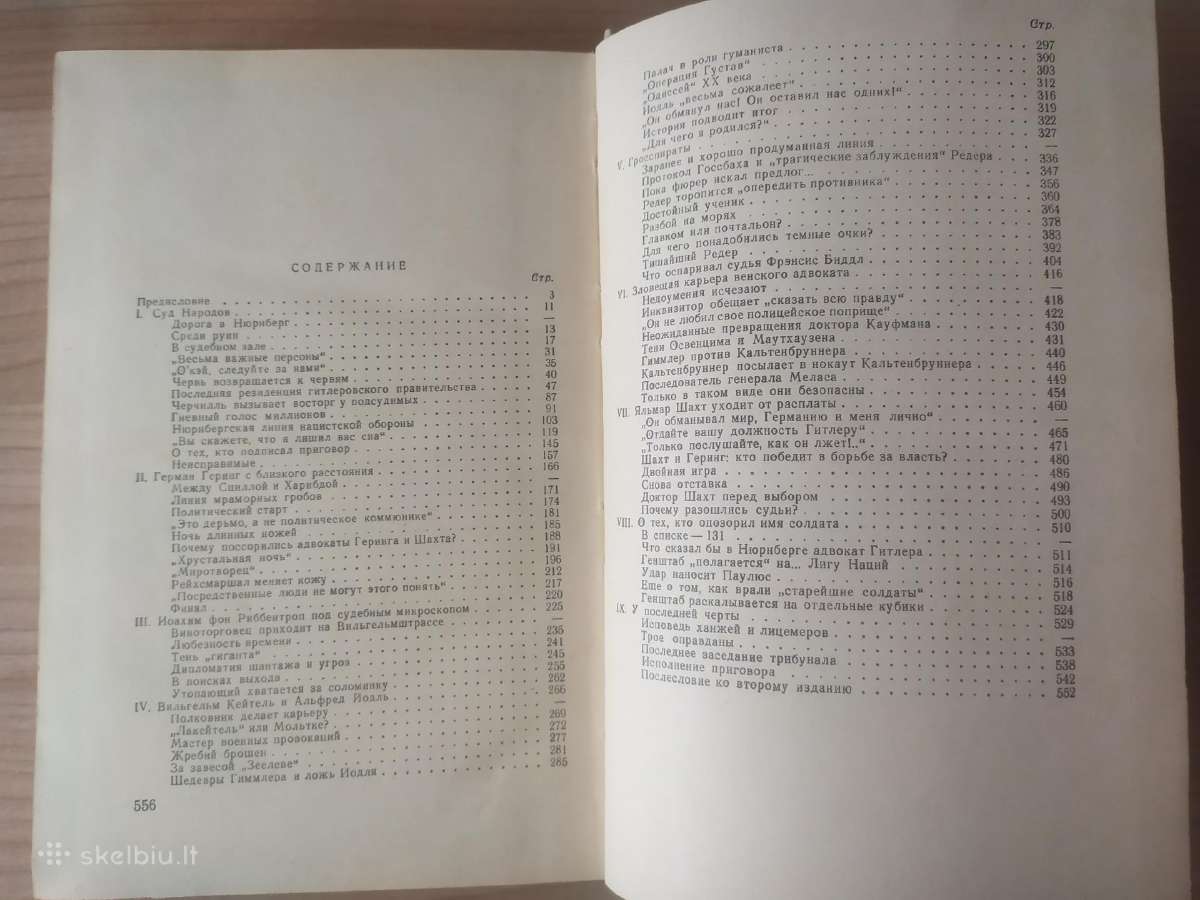 СОДЕРЖАНИЕ
Стр.
Предисловие 3
I. Суд Народов 11
Дорога в Нюрнберг —
Среди руин 13
В судебном зале 17
„Весьма важные персоны“ 31
„О'кэй, следуйте за нами“ 35
Червь возвращается к червям 40
Последняя резиденция гитлеровского правительства 47
Черчилль вызывает восторг у подсудимых 87
Гневный голос миллионов 91
Нюрнбергская линия нацистской обороны 103
„Вы скажете, что я лишил вас сна“ 119
О тех, кто подписал приговор 145
Неисправимые 157
II. Герман Геринг с близкого расстояния 166
Между Сциллой и Харибдой —
Линия мраморных гробов 171
Политический старт 174
„Это дерьмо, а не политическое коммюнике“ 181
Ночь длинных ножей 185
Почему поссорились адвокаты Геринга и Шахта? 188
„Хрустальная ночь“ 191
„Миротворец“ 196
Рейхсмаршал меняет кожу 212
„Посредственные люди не могут этого понять“ 217
Финал 220
III. Иоахим фон Риббентроп под судебным микроскопом 225
Виноторговец приходит на Вильгельмштрассе —
Любезность времени 235
Тень „гиганта“ 241
Дипломатия шантажа и угроз 245
В поисках выхода 255
Утопающий хватается за соломинку 262
IV. Вильгельм Кейтель и Альфред Йодль 266
Полковник делает карьеру —
„Лакейтель“ или Мольтке? 269
Мастер военных провокаций 272
Жребий брошен 277
За завесой „Зеелеве“ 281
Шедевры Гиммлера и ложь Йодля 285
556
Стр.
Палач в роли гуманиста 297
„Операция Густав“ 300
„Одиссей“ XX века 303
Йодль „весьма сожалеет“ 312
„Он обманул нас! Он оставил нас одних!“ 316
История подводит итог 319
„Для чего я родился?“ 322
V. Гросспираты 327
Заранее и хорошо продуманная линия —
Протокол Госсбаха и „трагические заблуждения“ Редера 336
Пока фюрер искал предлог... 347
Редер торопится „опередить противника“ 356
Достойный ученик 360
Разбой на морях 364
Главком или почтальон? 378
Для чего понадобились темные очки? 383
Тишайший Редер 392
Что оспаривал судья Фрэнсис Биддл 404
VI. Зловещая карьера венского адвоката 416
Недоумения исчезают —
Инквизитор обещает „сказать всю правду“ 418
„Он не любил свое полицейское поприще“ 422
Неожиданные превращения доктора Кауфмана 430
Тени Освенцима и Маутхаузена 431
Гиммлер против Кальтенбруннера 440
Кальтенбруннер посылает в нокаут Кальтенбруннера 446
Последователь генерала Меласа 449
Только в таком виде они безопасны 454
VII. Яльмар Шахт уходит от расплаты 460
„Он обманывал мир, Германию и меня лично“ —
„Отдайте вашу должность Гитлеру“ 465
„Только послушайте, как он лжет!..“ 471
Шахт и Геринг: кто победит в борьбе за власть? 480
Двойная игра 486
Снова отставка 490
Доктор Шахт перед выбором 493
Почему разошлись судьи? 500
VIII. О тех, кто опозорил имя солдата 510
В списке — 131 —
Что сказал бы в Нюрнберге адвокат Гитлера 511
Генштаб „полагается“ на... Лигу Наций 514
Удар наносит Паулюс 516
Еще о том, как врали „старейшие солдаты“ 518
Генштаб раскалывается на отдельные кубики 524
IX. У последней черты 529
Исповедь ханжей и лицемеров —
Трое оправданы 533
Последнее заседание трибунала 538
Исполнение приговора 542
Послесловие ко второму изданию 552
skelbiu.lt